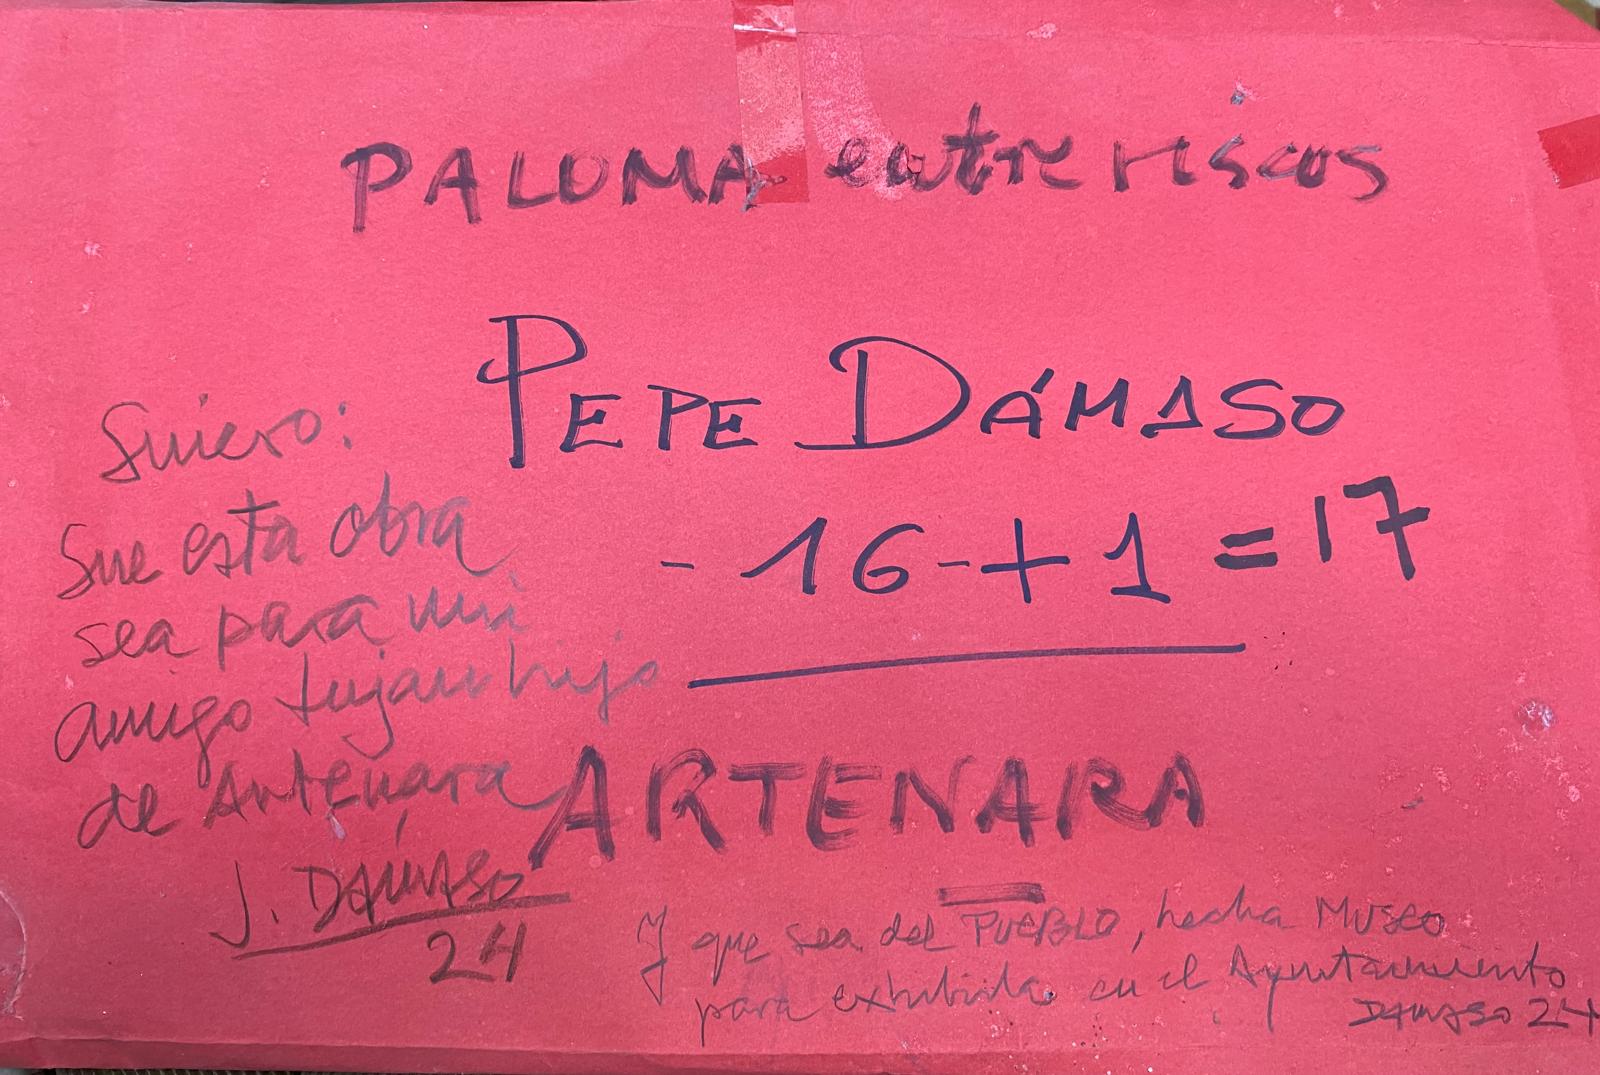 PALOMA entre riscos
PEPE DÁMASO
- 16 - + 1 = 17
Quiero:
Que esta obra
sea para mi
amigo Lujan hijo
de Artenara
J. DÁMASO
24
ARTENARA
Y que sea del PUEBLO, hecha Museo
para exhibirla en el Ayuntamiento
DAMASO 24